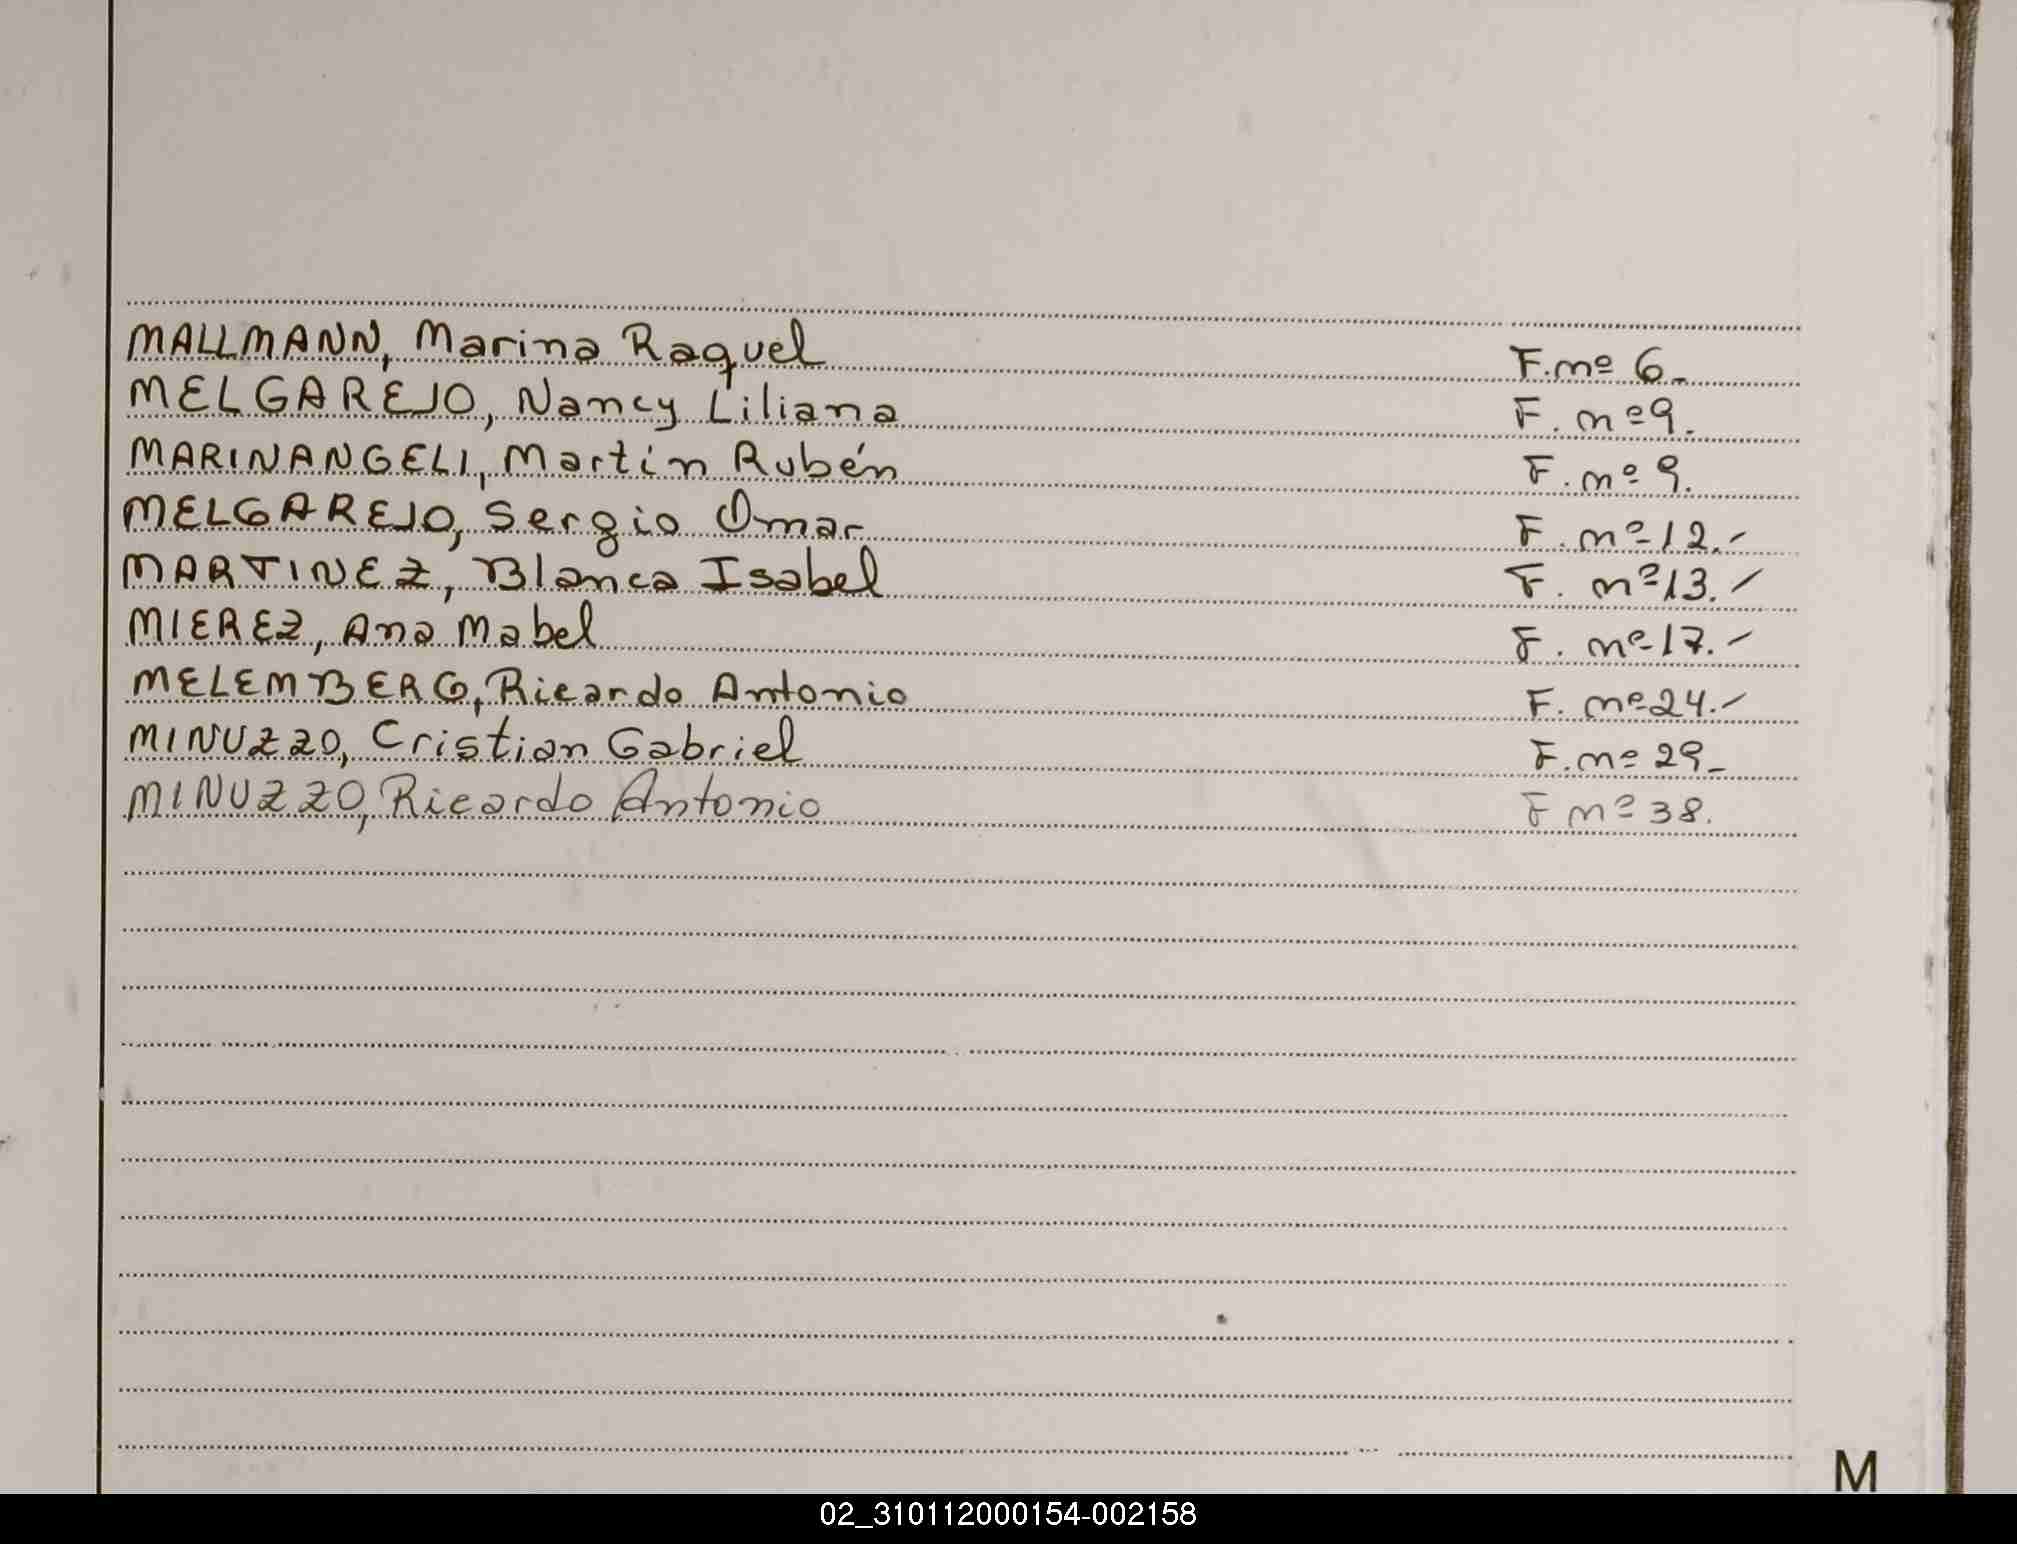 MALLMANN, Marina Raquel F. nº 6_
MELGAREJO, Nancy Liliana F. nº 9.
MARINANGELI, Martín Rubén F. nº 9.
MELGAREJO, Sergio Omar F. nº 12.-
MARTINEZ, Blanca Isabel F. nº 13.-
MIEREZ, Ana Mabel F. nº 17.-
MELEMBERG, Ricardo Antonio F. nº 24.-
MINUZZO, Cristian Gabriel F. nº 29_
MINUZZO, Ricardo Antonio F nº 38.
M
02_310112000154-002158